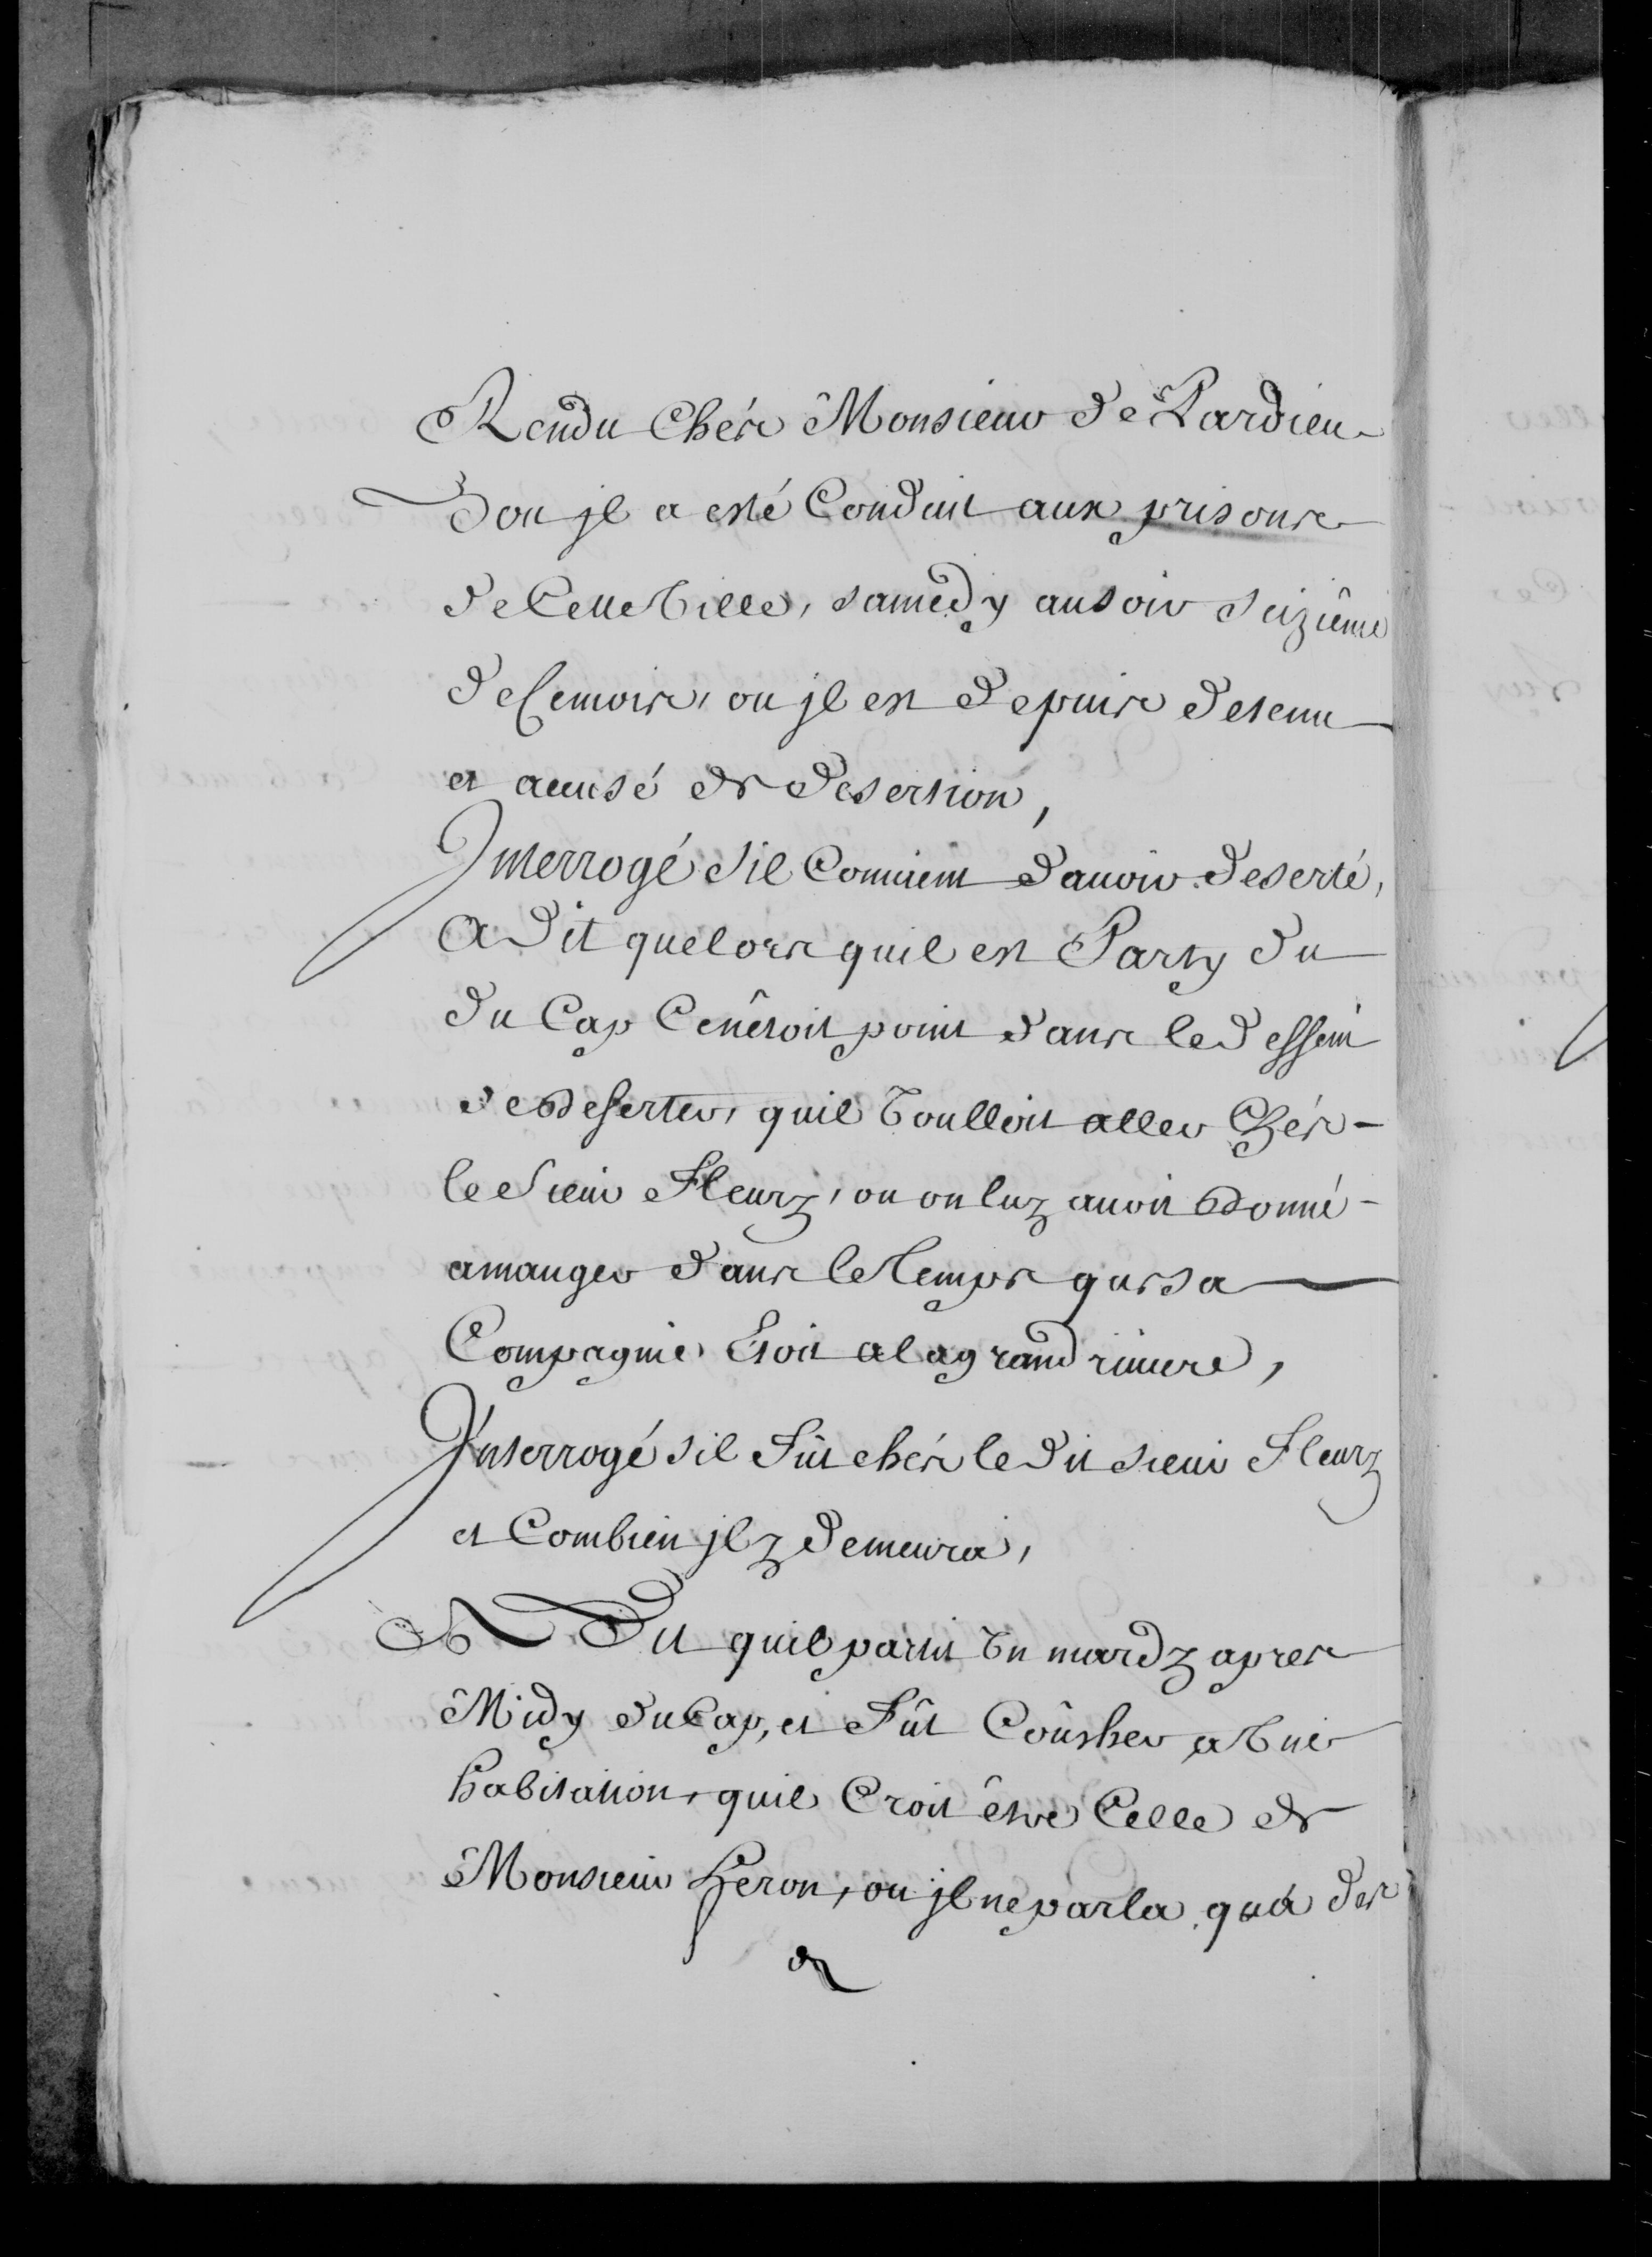 Rendu Chés Monsieur De Pardieu
Dou jl a esté Conduit aux prisons
de Cette Ville, samedy au soir seizième
de Ce mois, ou jl est depuis detenu
et accusé de desertion,
Interrogé sil Convient d'avoir deserté,
A Dit que lors quil est Party du
du Cap Ce nêtoit point dans le dessein
de deserter, quil Voulloit aller Chés
le sieur Fleury, ou on luy avoit donné
a manger dans le Temps que sa
Compagnie Etoit a la grand riviere,
Interrogé sil Fût chés le dit sieur Fleury
et Combien jl y demeura,
A Dit quil partit Un mardy apres
Midy du Cap, et Fût Coûsher a Une
habitation, quil Croit être Celle de
Monsieur Heron, ou jl ne parla qu'à des